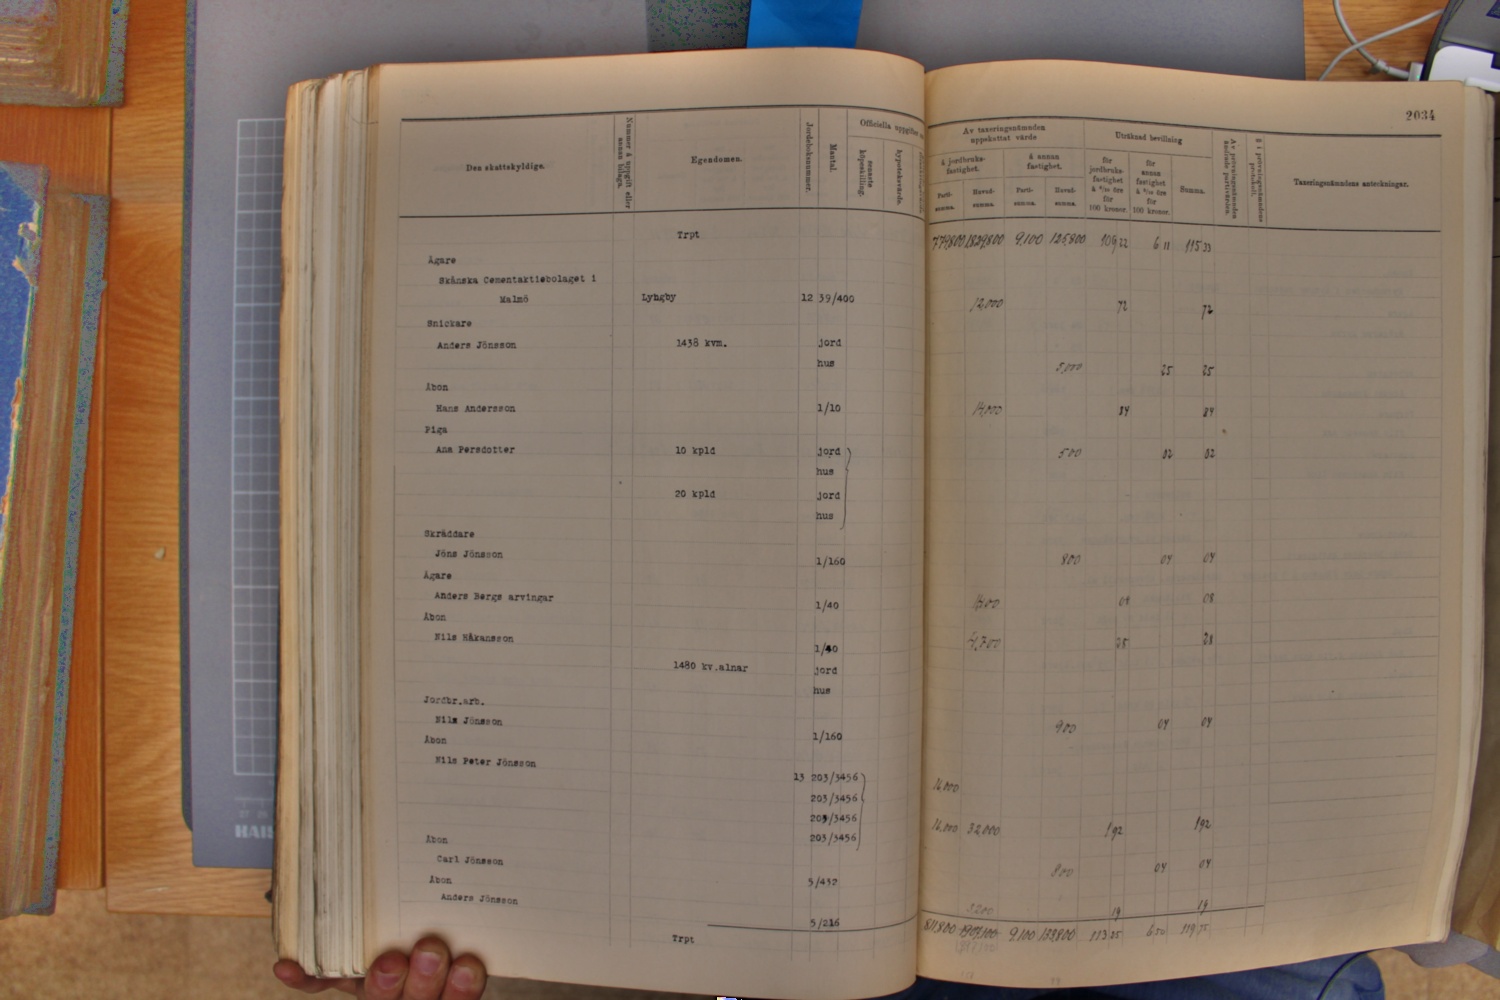 2034
Den skattskyldige.
Nummer å uppgift eller annan bilaga.
Egendomen.
Jordeboksnummer.
Mantal.
Officiella uppgifter
senaste köpeskilling.
hypoteksvärde.
Av taxeringsnämnden uppskattat värde
å jordbruksfastighet.
å annan fastighet.
Parti-summa.
Huvud-summa.
Parti-summa.
Huvud-summa.
Uträknad bevillning
för jordbruksfastighet å 6/10 öre för 100 kronor.
för annan fastighet å 5/10 öre för 100 kronor.
Summa.
Av prövningsnämnden ändrade partivärden.
§ i prövningsnämndens protokoll.
Taxeringsnämndens anteckningar.
Trpt 779,800 1,829,800 9,100 125,800 109,22 6 11 115 33
Ägare
Skånska Cementaktiebolaget i
Malmö Lyngby 12 39/400 12,000 72 72
Snickare
Anders Jönsson 1438 kvm. jord
hus 5,000 25 25
Åbon
Hans Andersson 1/10 14,000 84 84
Piga
Ana Persdotter 10 kpld jord 500 02 02
hus
20 kpld jord
hus
Skräddare
Jöns Jönsson 1/160 800 04 04
Ägare
Anders Bergs arvingar 1/40 08
Åbon
Nils Håkansson 1/40 4,700 28 28
1480 kv.alnar jord
hus
Jordbr.arb.
Nils Jönsson 1/160 900 04 04
Åbon
Nils Peter Jönsson
13 203/3456 16,000
203/3456
203/3456 16,000 32,000 1 92 1 92
203/3456
Åbon
Carl Jönsson 5/432 800 04 04
Åbon
Anders Jönsson 5/216 3200 19 19
Trpt 811,800 9,100 133,800 113 25 6 50 119 75